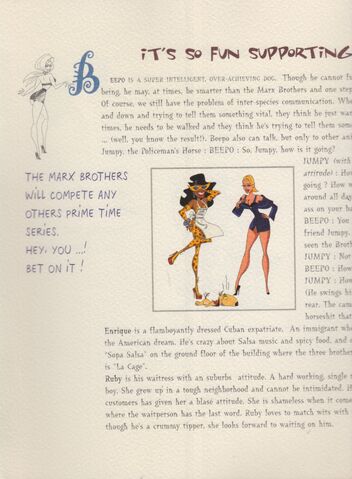 IT'S SO FUN SUPPORTING
BEEPO IS A SUPER INTELLIGENT, OVER-ACHIEVING DOG. Though he cannot
being, he may, at times, be smarter than the Marx Brothers and one step
Of course, we still have the problem of inter-species communication.
and down and trying to tell them something vital, they think he just
times, he needs to be walked and they think he's trying to tell them
... (well, you know the result!). Beepo also can talk, but only to other
Jumpy, the Policeman's Horse : BEEPO : So, Jumpy, how is it going?
JUMPY (with
attitude) :
going ? How
around all day
ass on your
BEEPO : You
friend Jumpy,
seen the
JUMPY :
BEEPO :
JUMPY :
(He swings his
rear. The
horseshit
THE MARX BROTHERS
WILL COMPETE ANY
OTHERS PRIME TIME
SERIES.
HEY, YOU ...!
BET ON IT !
Enrique is a flamboyantly dressed Cuban expatriate. An immigrant
the American dream. He's crazy about Salsa music and spicy food, and
"Sopa Salsa" on the ground floor of the building where the three
is "La Cage".
Ruby is his waitress with an suburbs attitude. A hard working, single
boy. She grew up in a tough neighborhood and cannot be intimidated.
customers has given her a blasé attitude. She is shameless when it
where the waitperson has the last word. Ruby loves to match wits with
though he's a crummy tipper, she looks forward to waiting on him.